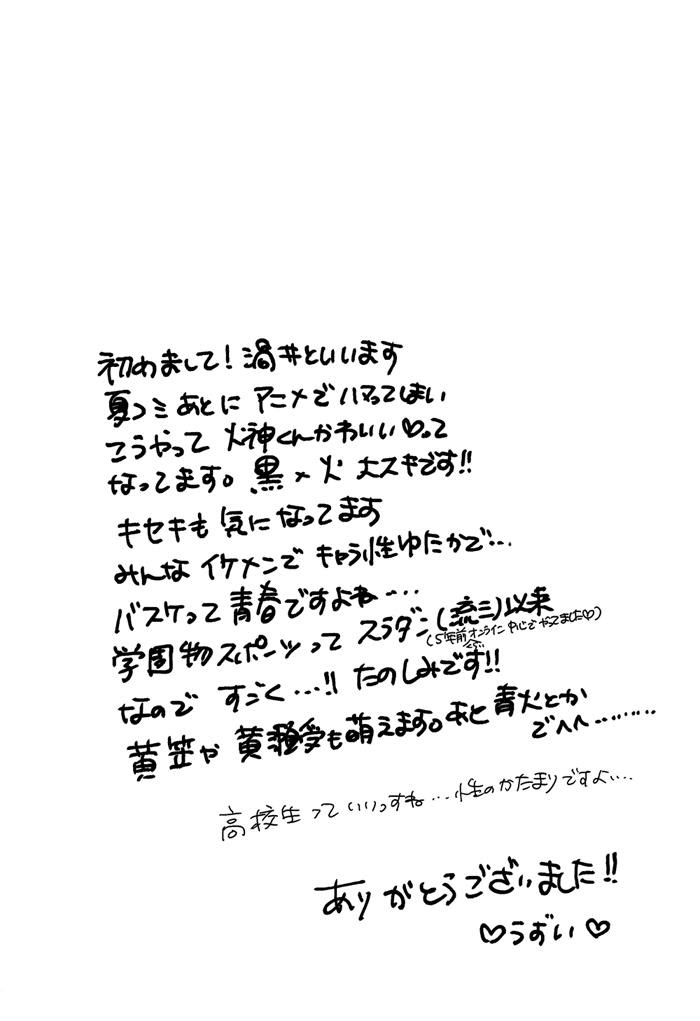 初めまして!渦井といいます
夏コミあとに アニメでハマってしまい
こうやって 火神くんかわいい♡って
なってます。黒×火 大スキです!!
キセキも 気になってます
みんな イケメンで キャラ性ゆたかで…
バスケって 青春ですよね…
学園物スポーツって スラダン(流三)以来
(5年前オンライン中心でやってました♡)
なので すごく…!! たのしみです!!
黄笠や 黄瀬受も萌えます。あと 青火とか
でへへ………
高校生っていいっすね…性のかたまりですよ…
ありがとうございました!!
♡うずい♡